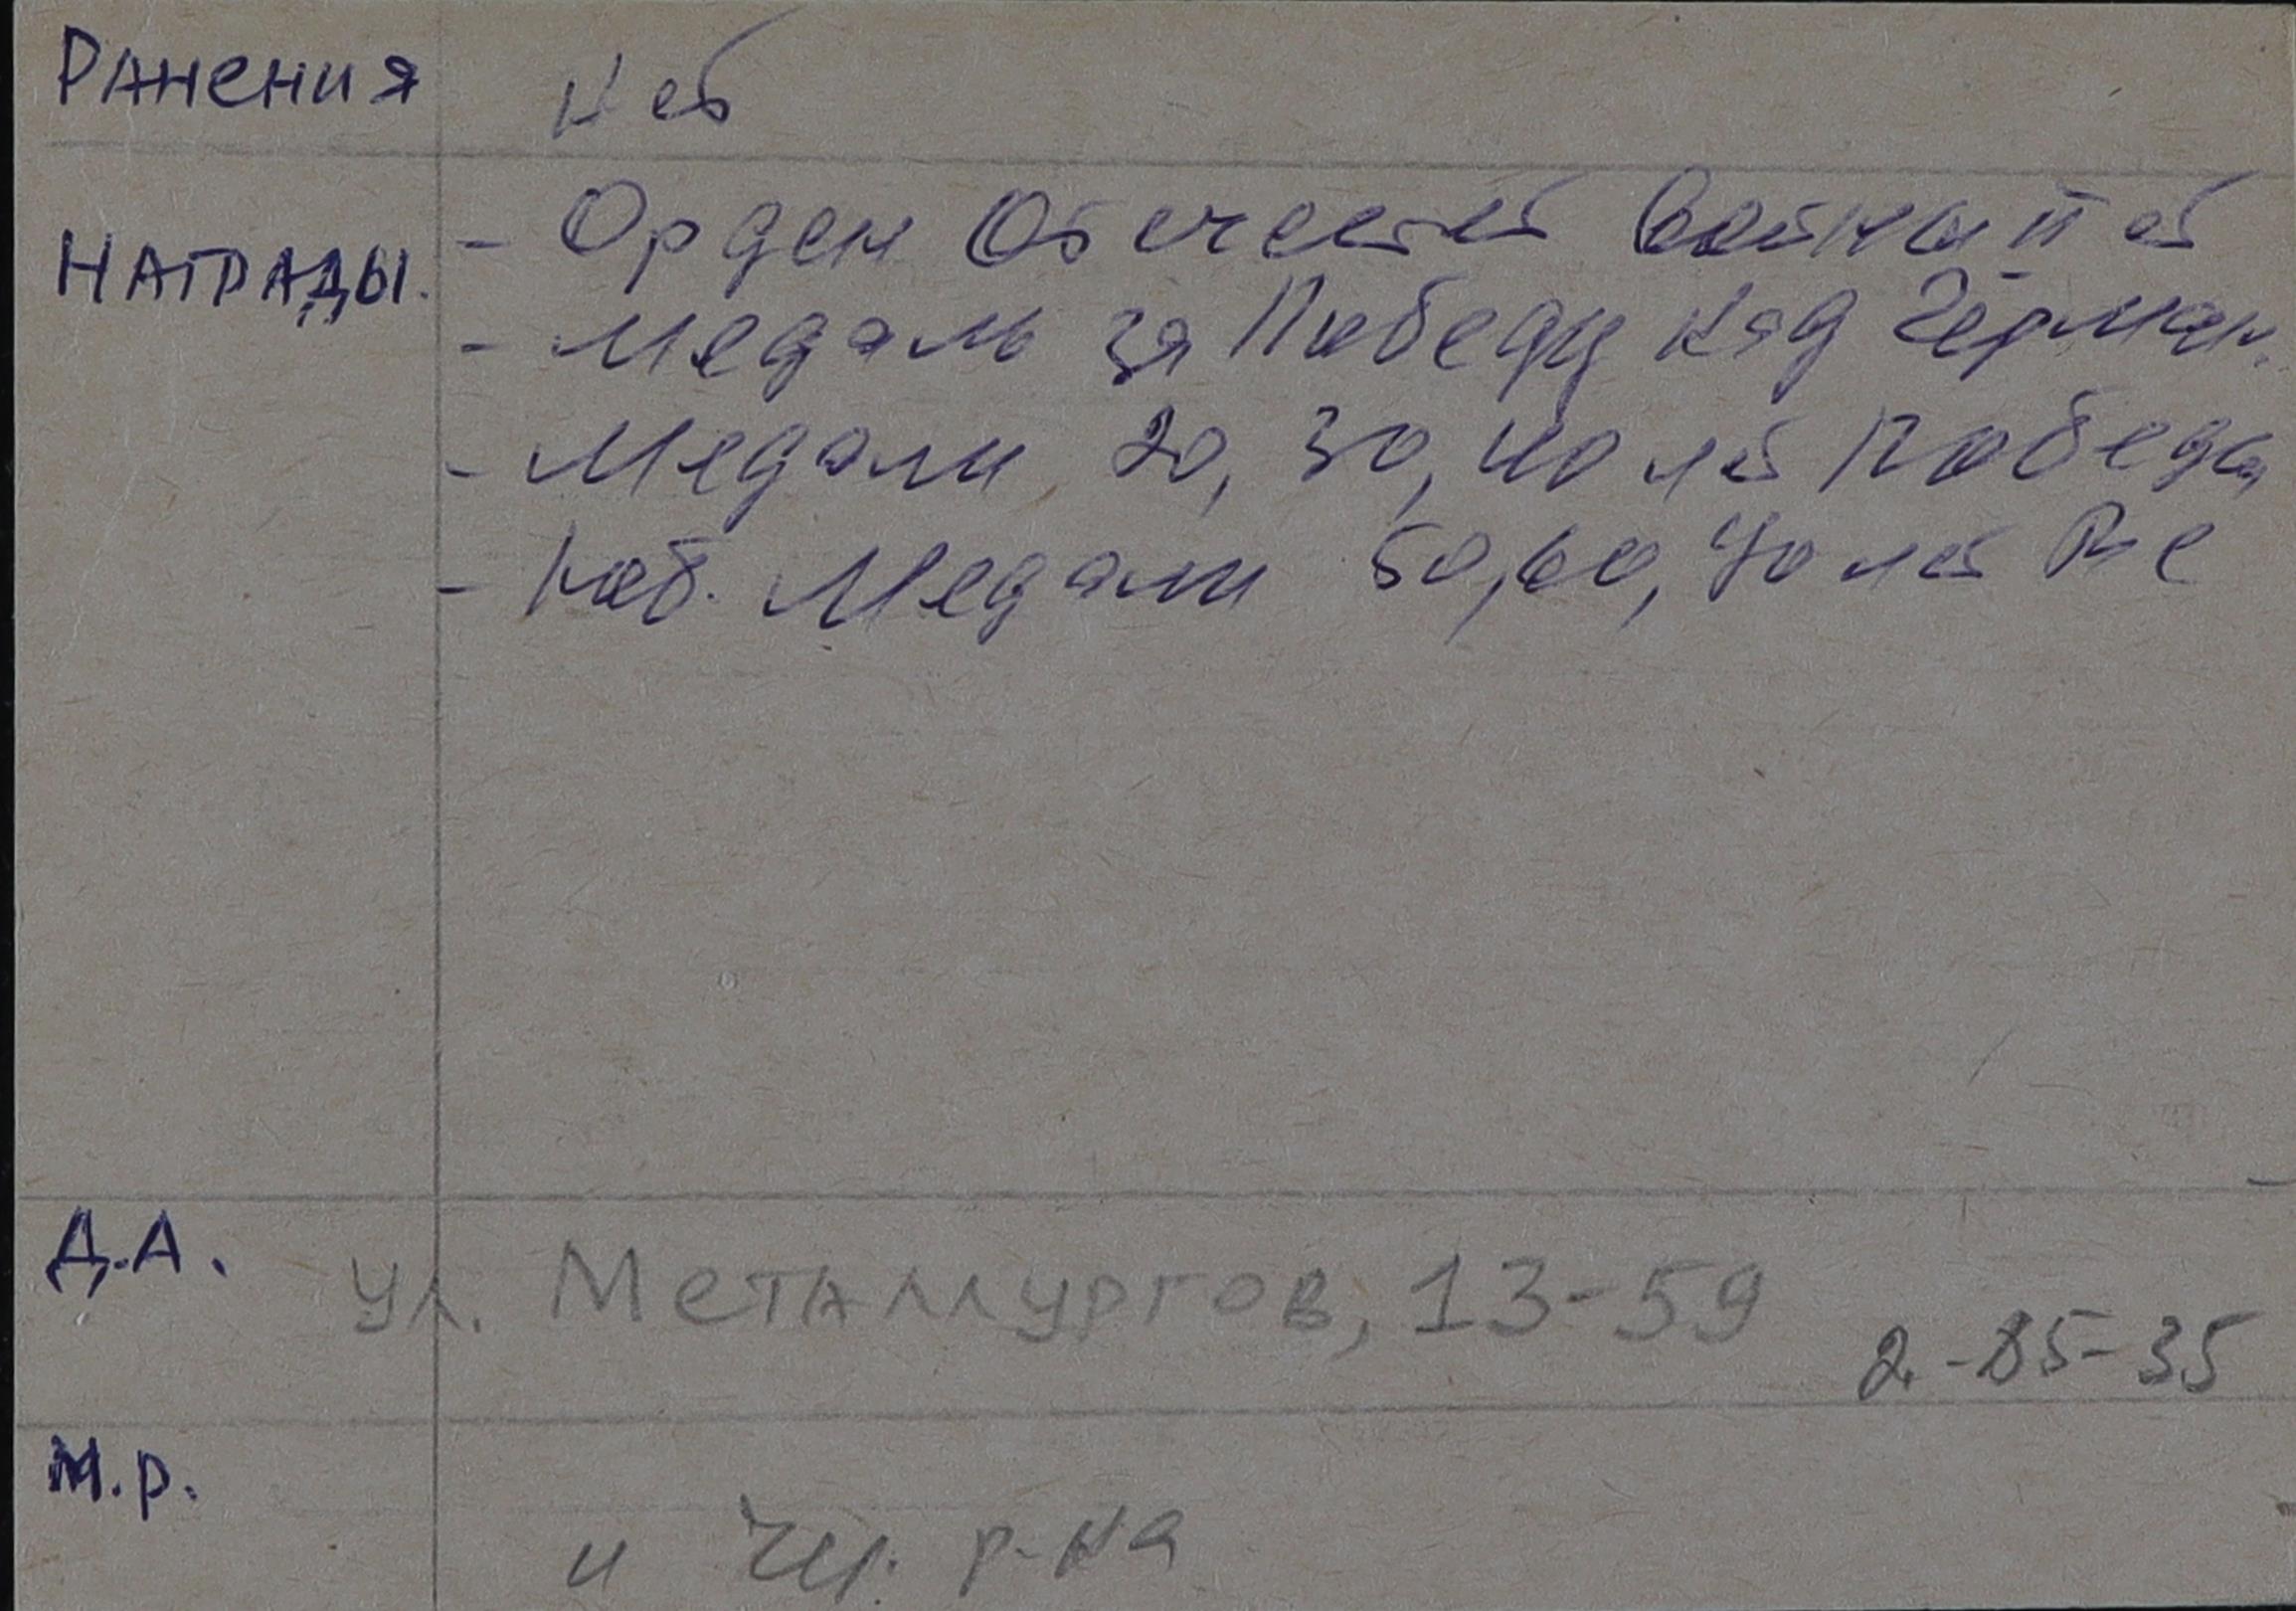 Ранения нет
Награды. - Орден Отечеств Войны II ст
- Медаль за Победу над Герман.
- Медали 20, 30, 40 лет Победы
- Юб. Медали 50, 60, 70 лет ВС
Д.А. ул. Металлургов, 13-59
2-85-35
М.р.
и Чер. р-на